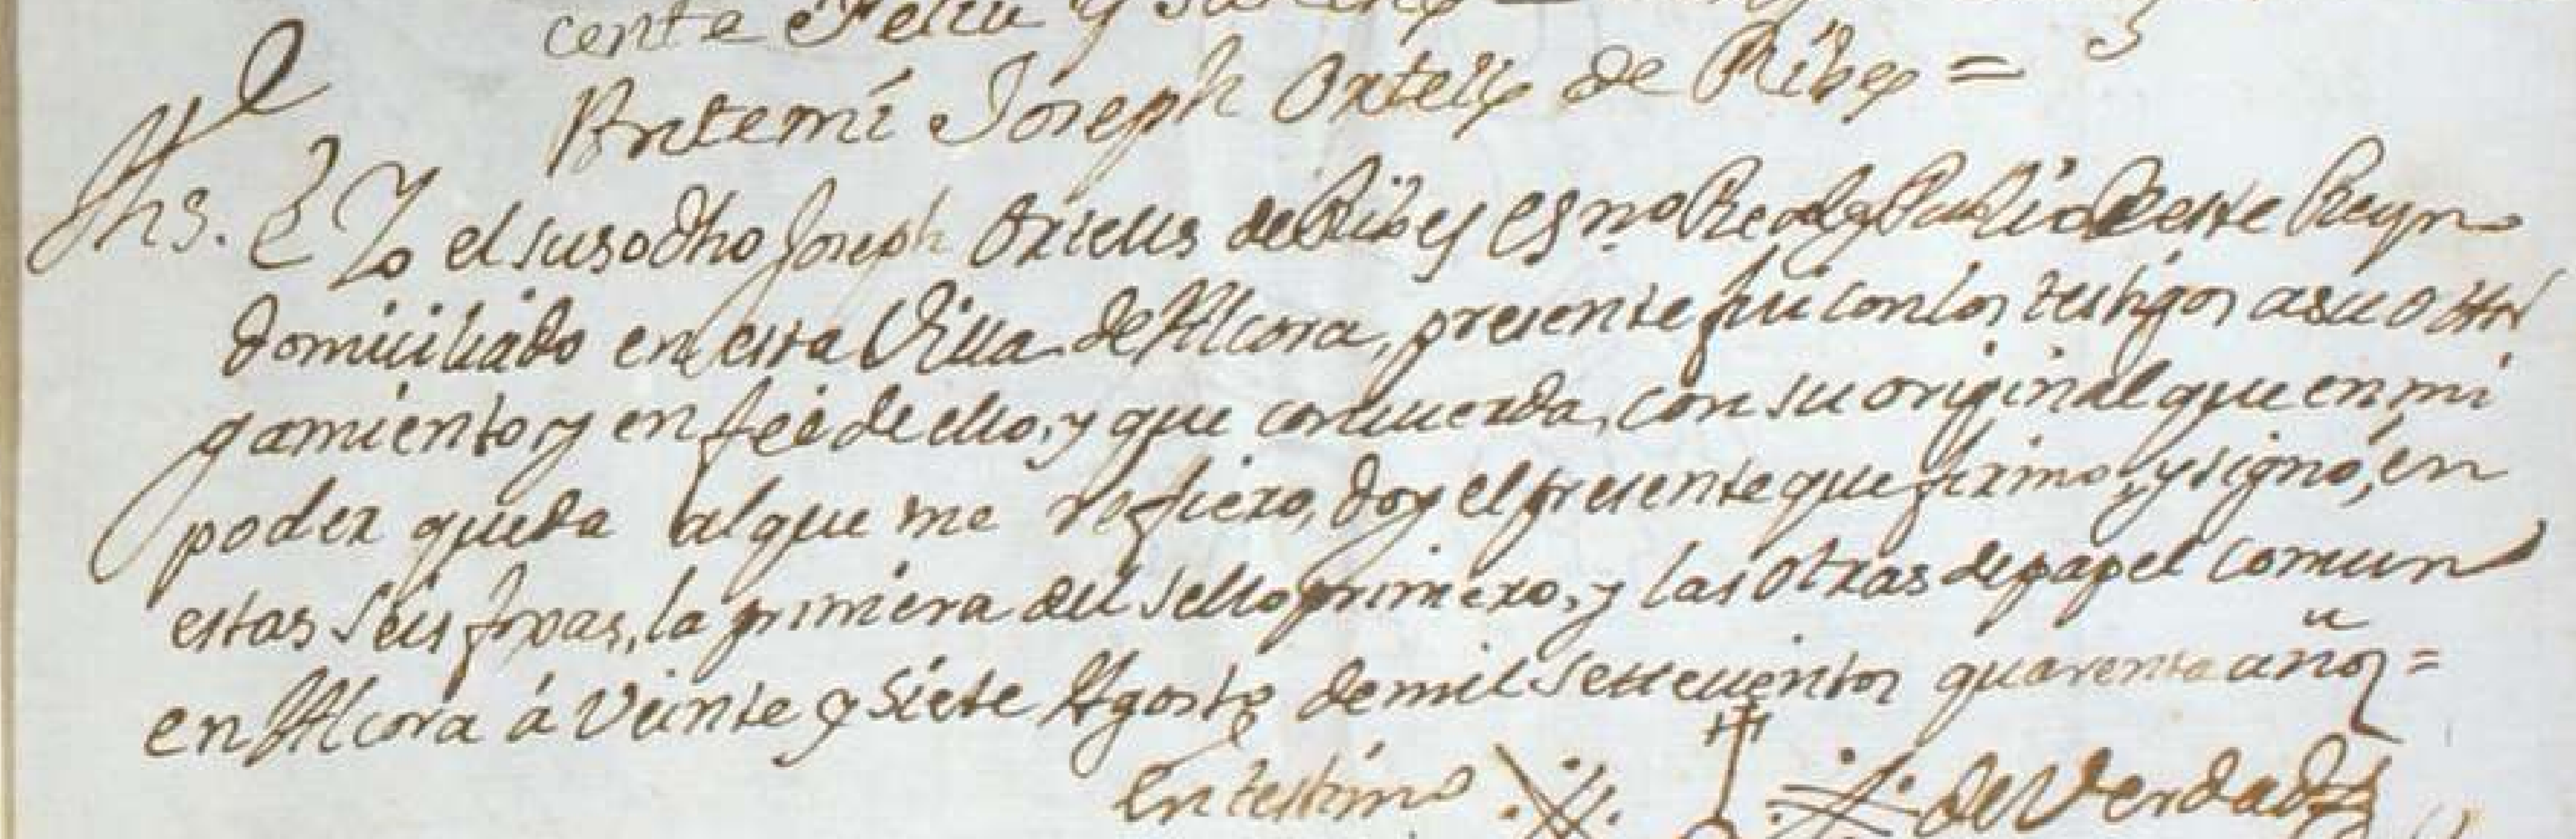 cente Feliu y
Antemi Joseph Ortells de Ribes =
Yo el susodho Joseph Ortells de Ribes Esno Real y Publico de este Reyno
domiciliado en esta Villa de Alcora, presente fui con los testigos a su otor
gamiento, y en feé de ello, y que concuerda, con su original que en mi
poder queda al que me refiero, doy el presente que firmo, y signo, en
estas seis fojas, la primera del sello primero, y las otras de papel comun
en Alcora á Veinte y Siete Agosto de mil Settecientos quarenta años =
En testimo de Verdad